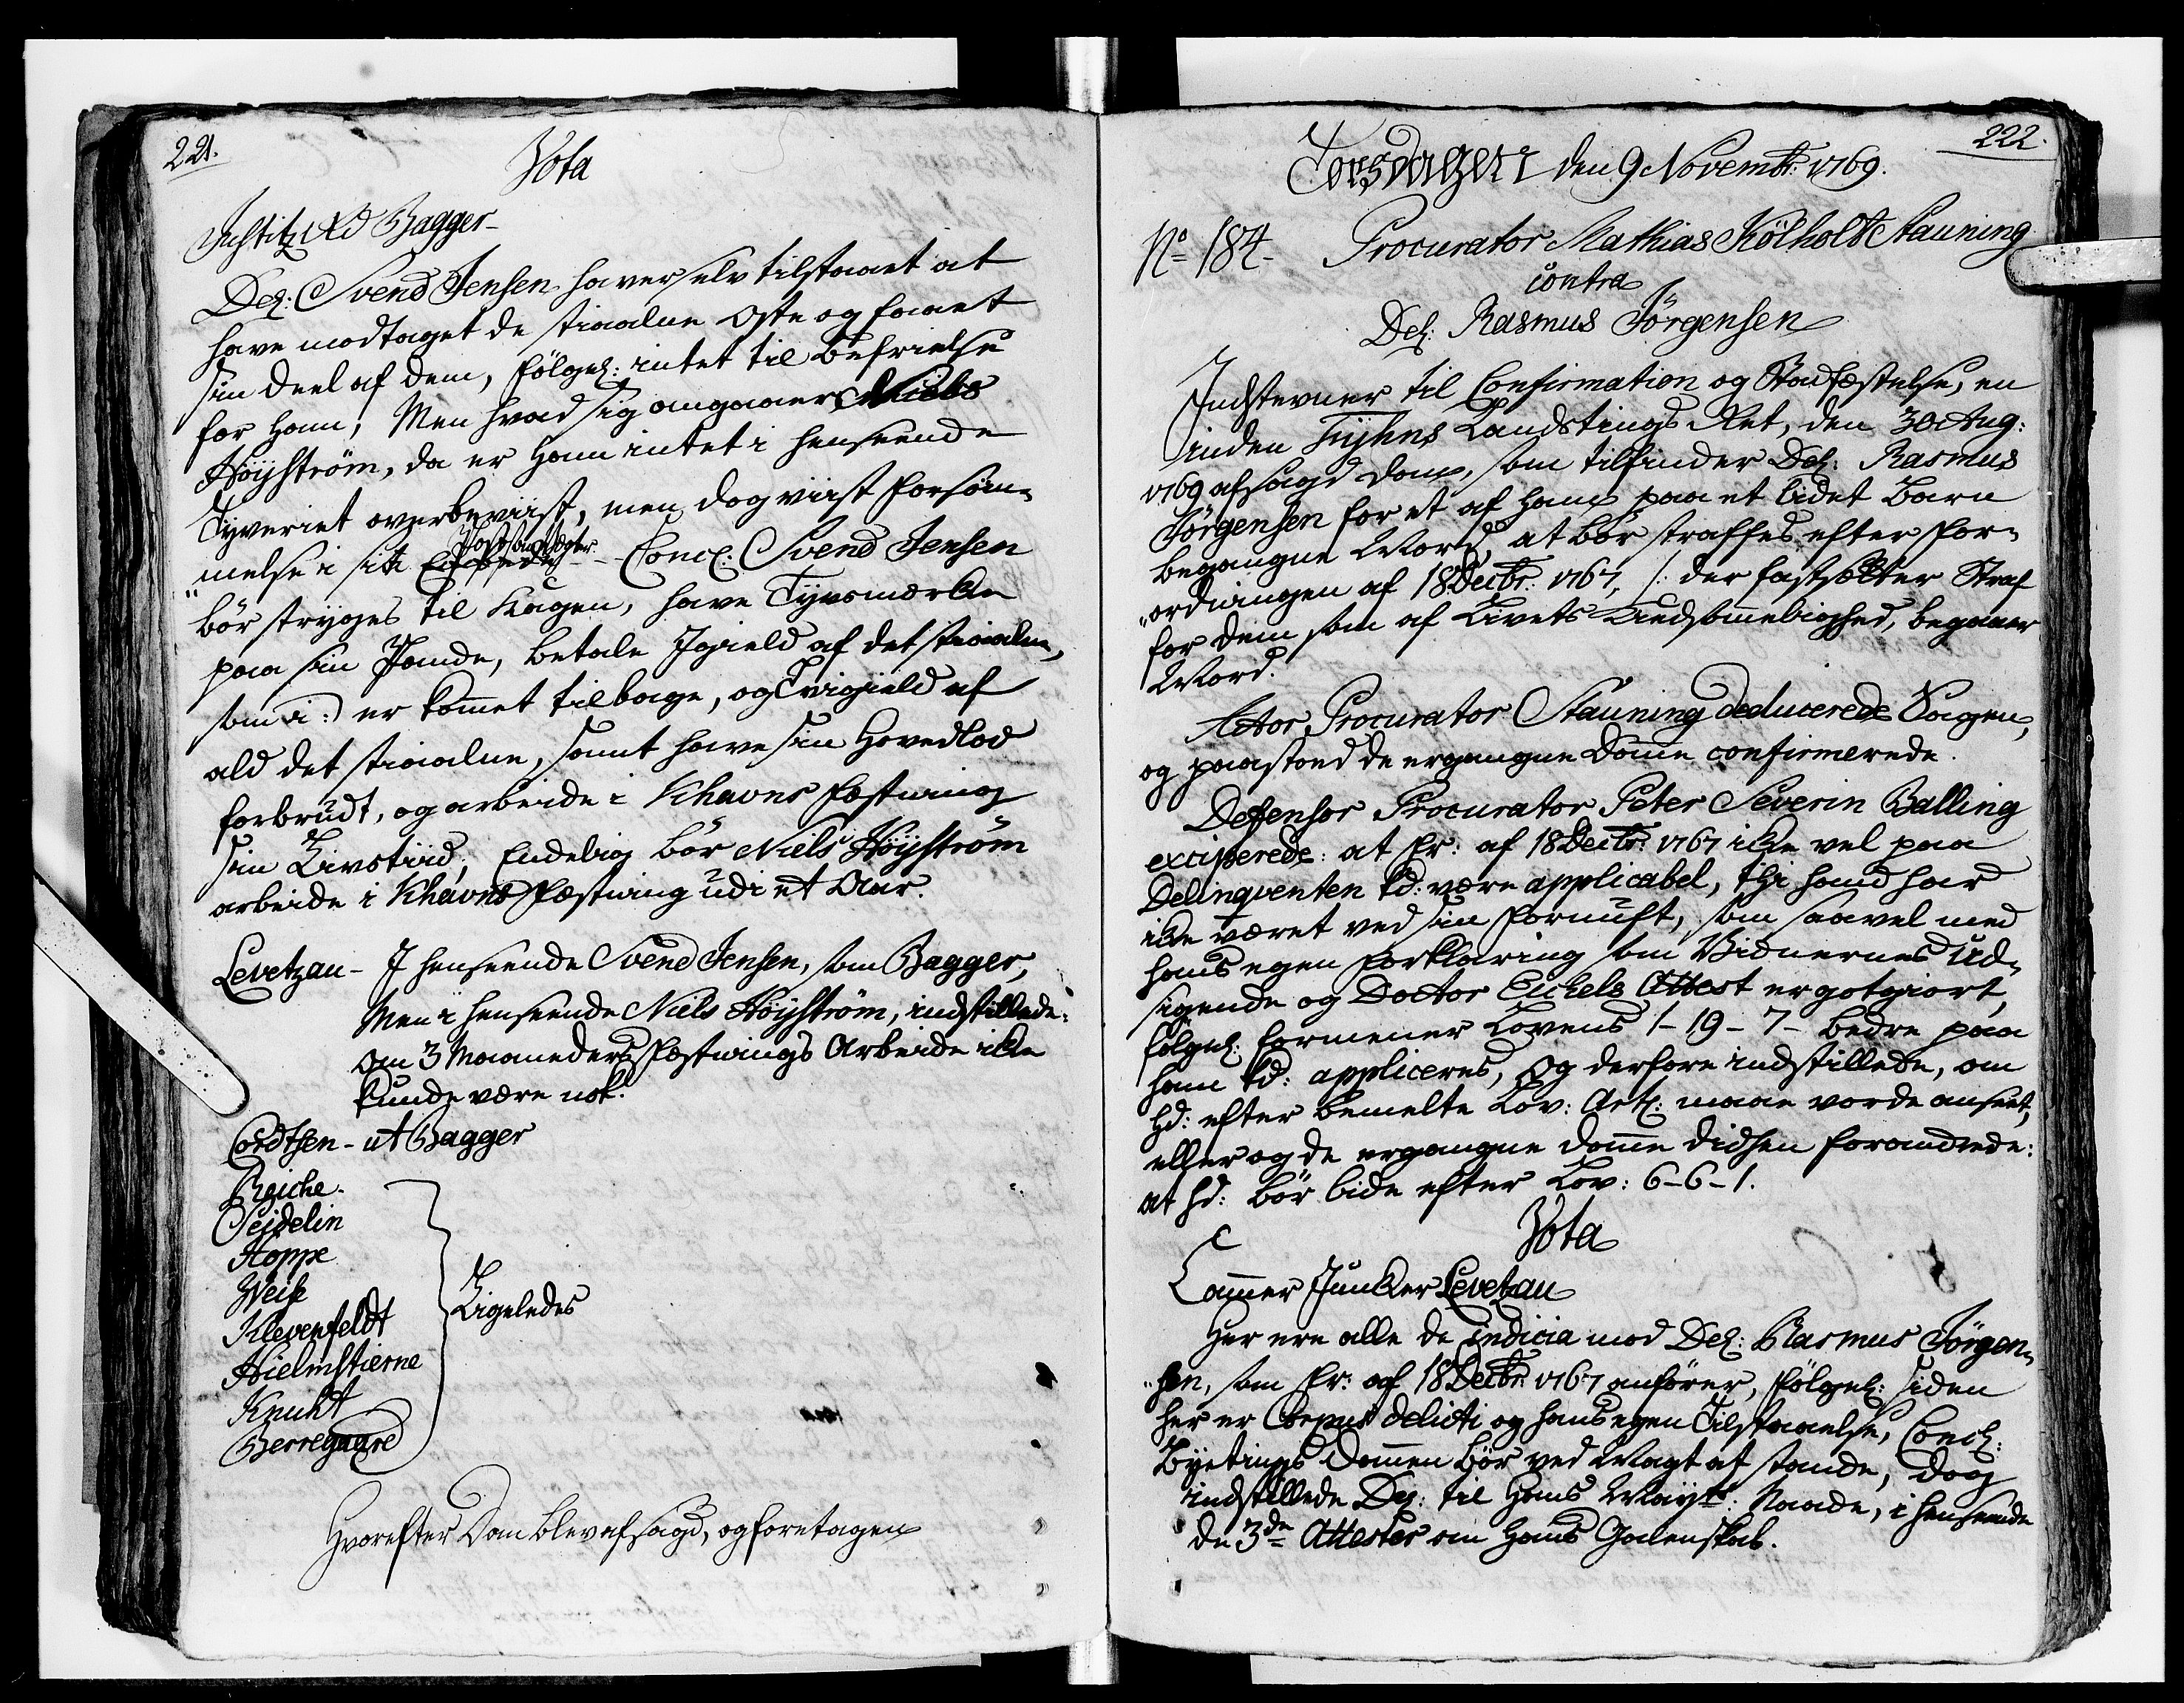 221.
Vota
Justitz Rd Bagger
Del: Svend Jensen haver selv tilstaaet at
have modtaget de stiaalne Oste og faaet
sin deel af dem, følgel: intet til befrielse
for ham; Men hvad sig angaaer Niels
Høyström, da er ham intet i henseende
Tyveriet overbeviist, men dog viist forsøm-
"melse i sit
Conel: Svend Jensen
bør stryges til Kagen, have Tyvsmærke
paa sin Pande, betale Igield af det stiaalne,
som er kommet tilbage, og Tvigield af
ald det stiaalne, samt have sin Hovedlod
forbrudt, og arbeide i Khavns Fæstning
sin Livstiid; Endelig bør Niels Høyström
arbeide i Khavns Fæstning udi et Aar.
Levetzau - I henseende Svend Jensen, som Bagger,
Men i henseende Niels Høyström, indstillede:
om 3 Maaneders Fæstnings Arbeide icke
kunde være nok.
Cordtsen - ut Bagger
Reiche
Sejdelin
Hoppe
Weise
Klevenfeldt
Hielmstierne
Knuht
Berregaard
Ligeledes
Hvorefter Dom blev afsagd, og foretagen
222.
Torsdagen den 9 Novembr: 1769.
No 184. Procurator Mathias Kölholt Stauning
contra
Del: Rasmus Jörgensen
Indstevner til Confirmation og Stadfæstelse, en
inden Fyhns Landstings Ret, den 30 Aug:
1769 afsagd Dom, som tilfinder Del: Rasmus
Jörgensen for et af ham paa et lidet Barn
begangne Mord, at bør straffes efter For-
"ordningen af 18 Decbr: 1767, /: der fastsætter Straf
for dem som af Livets Kiedsommelighed, begaaer
Mord.
Actor Procurator Stauning deducerede Sagen,
og paastoed de ergangne Domme confirmerede.
Defensor Procurator Peter Severin Balling
exciperede: at Fr: af 18 Decbr: 1767 icke vel paa
Delinqventen kd: være applicabel, thi hand har
icke været ved sin Fornuft, som saavel med
hans egen Forklaring som Vidnernes Ud-
sigende og Doctor Eichels Attest er gotgiort,
følgel: formener Lovens 1-19-7- bedre paa
ham kd: appliceres, og derfore indstillede, om
hd: efter bemelte Lov: Art: maae vorde anseet,
eller og de ergangne Domme didhen forandrede:
at hd: bør lide efter Lov: 6-6-1.
Vota
Cammer Juncker Levetzau
Her ere alle de indicia mod Del: Rasmus Jörgen-
"sen, som Fr: af 18 Decbr: 1767 anfører, følgel: siden
her er Corpus delicti og hans egen Tilstaaelse, Concl:
Byetings Dommen bør ved Magt at stande, dog
indstillede Del: til Hans Mayts: Naade, i henseende
de 3de Attester om Hans Galenskab.